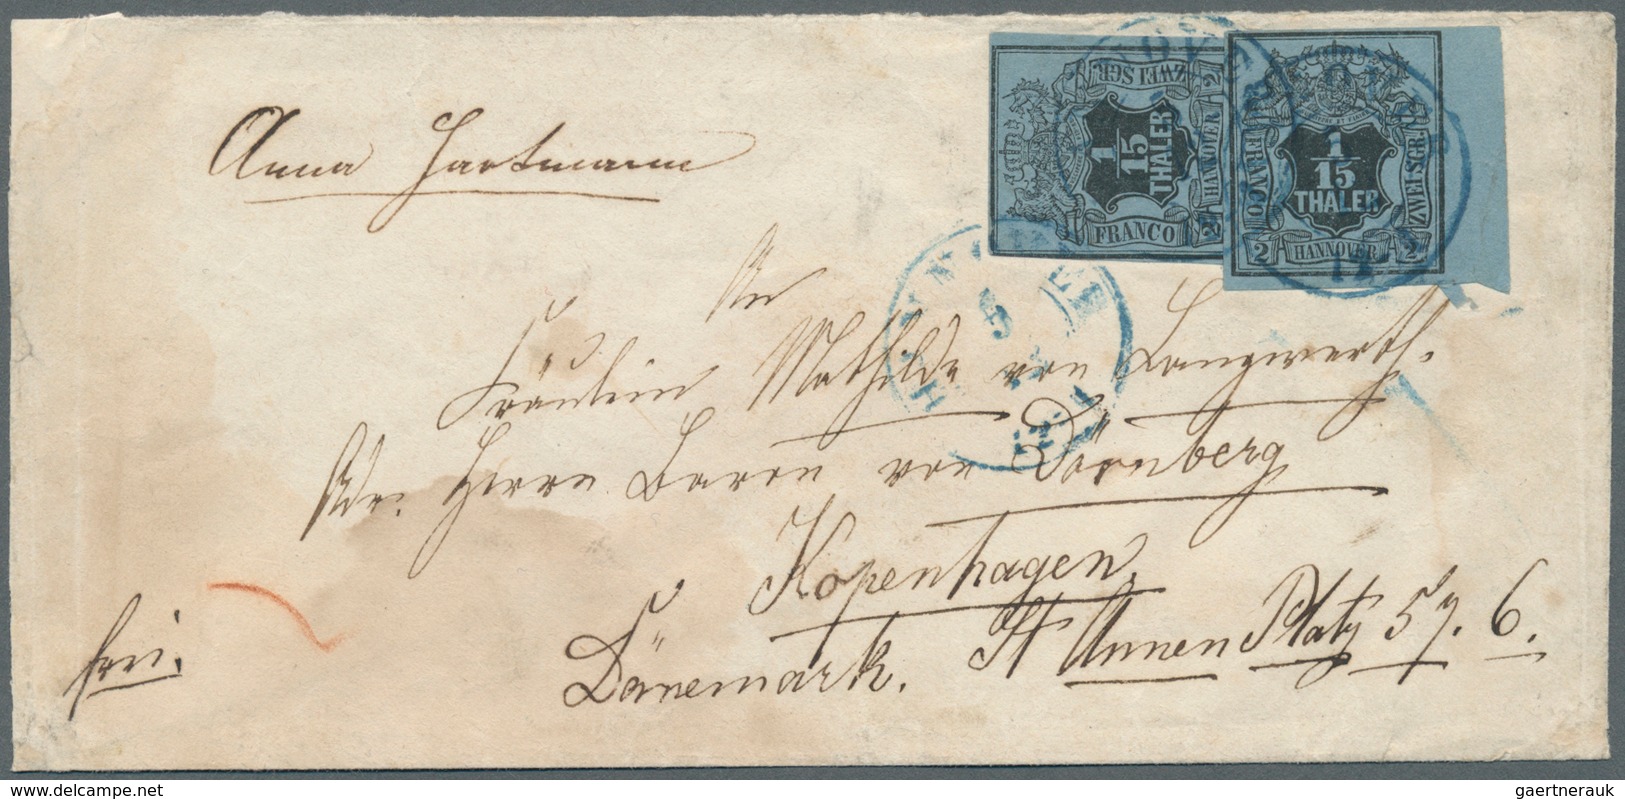 Anna Hartmann
FRANCO
ZWEI SGR.
HANNOVER
1
15
THALER
2
2
FRANCO
ZWEI SGR.
HANNOVER
1
15
THALER
2
2
HANNOVER
An
Fräulein Mathilde von Langwerth.
Adr. Herrn Baron von Dörnberg
Kopenhagen,
Dänemark. St Annen Platz 57. 6.
frei.
gaertnerauk